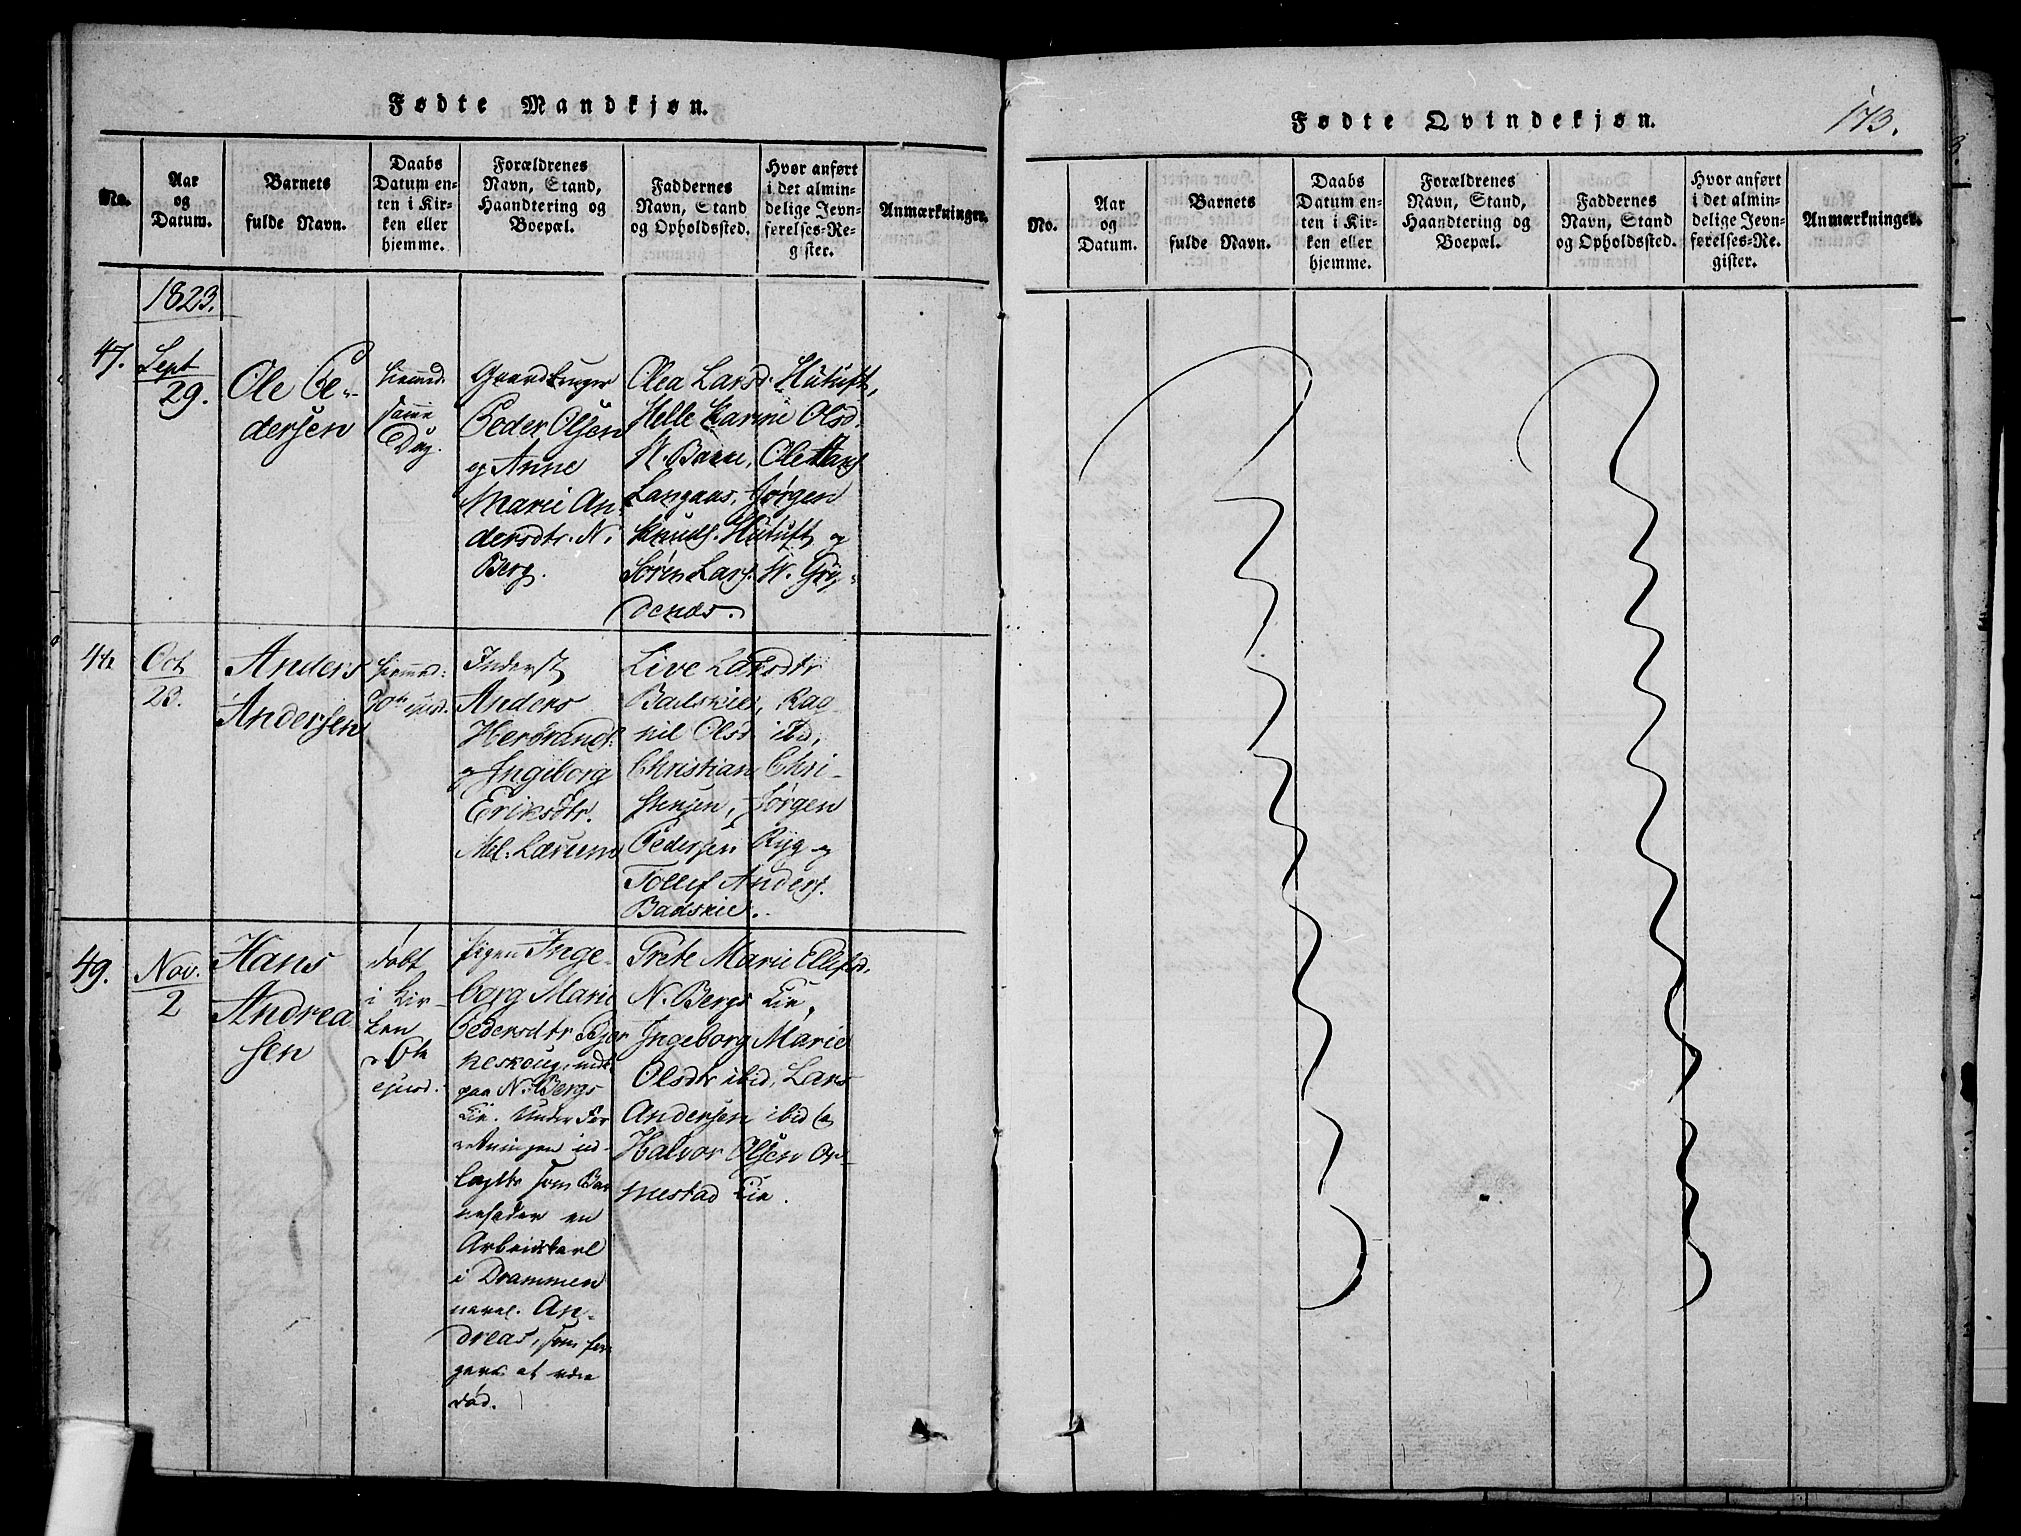 Fødte Mandkjøn.
No.
Aar
og
Datum.
Barnets
fulde Navn.
Daabs
Datum en-
ten i Kir-
ken eller
hjemme.
Forældrenes
Navn, Stand,
Haandtering og
Boepæl.
Faddernes
Navn, Stand
og Opholdssted.
Hvor anført
i det almin-
delige Jevn-
førelses-Re-
gister.
Anmærkninger.
1823.
47.
Sept
29.
Ole Pe-
dersen
hiemd.
samme
Dag.
Gaardbruger
Peder Olsen
og Anne
Marie An-
dersdtr. N.
Berg.
Olea Larsd. Hütuft,
Helle Karine Olsd.
N. Berg, Ole Hans.
Langaas, Jørgen
Knuds. Hütuft og
Søren Lars. N. Gry-
denæs.
Oct
23.
Anders
Andersen
hiemd.
ejusd.
Inderst
Anders
Herbrands.
og Ingeborg
Eriksdtr.
Mel. Lærum
Live Larsdtr
Badskie, Rag-
nil Olsd ibid,
Christian Chri-
stensen, Jørgen
Pedersen Ryg og
Tollef Anders.
Badskie.
49.
Nov.
2
Hans
Andrea
sen
døbt
i Kir-
ken
ejusd.
Pigen Inge-
borg Marie
Pedersdtr Bjer
keskoug, inds
paa N. Bergs
Eie. Under For
retningen ud-
lagtes som Bar
nefader en
Arbeidskarl
i Drammen
navnl. An-
dreas, som for
gives at være
død.
Grete Marie Ellefsd.
N. Bergs Eie,
Ingeborg Marie
Olsdtr ibid, Lars
Andersen ibid &
Halvor Olsen Op-
nestad Eie.
Fødte Qvindekjøn.
173.
No.
Aar
og
Datum.
Barnets
fulde Navn.
Daabs
Datum en-
ten i Kir-
ken eller
hjemme.
Forældrenes
Navn, Stand,
Haandtering og
Boepæl.
Faddernes
Navn, Stand
og Opholdssted.
Hvor anført
i det almin-
delige Jevn-
førelses-Re-
gister.
Anmærkninger.